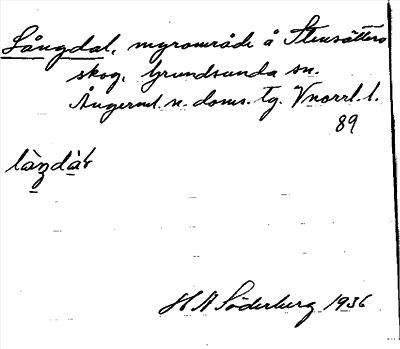 Långdal, myrområde å Stensätters
skog, Grundsunda sn.
Ångerml. n. doms. Tg. Vnorrl. l.
89
H A Söderberg 1936